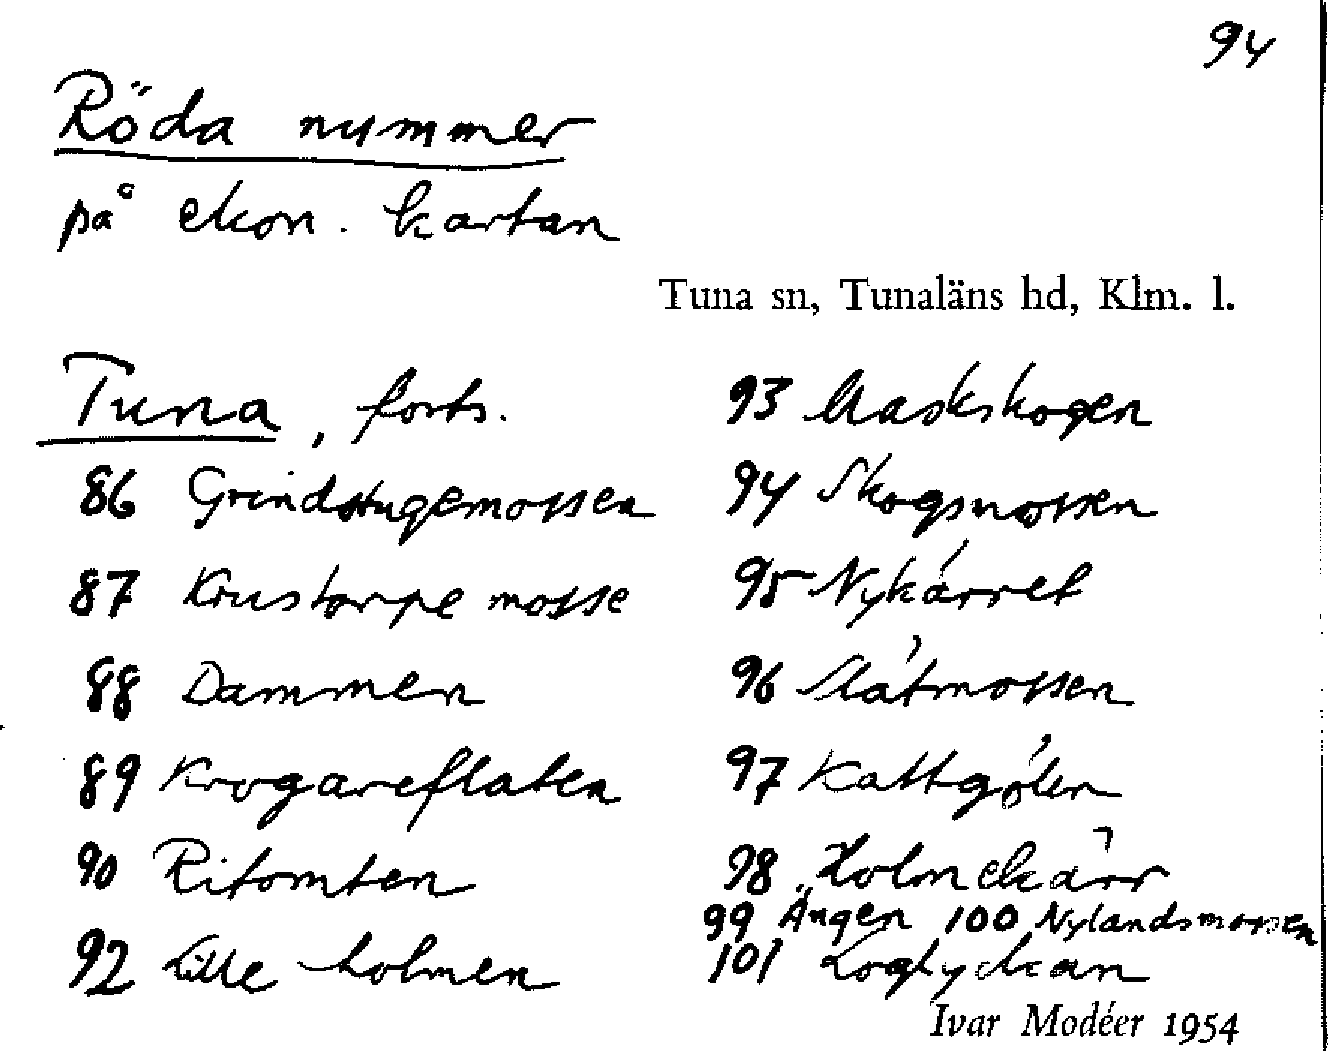 94
Röda nummer
på ekon. kartan
Tuna sn, Tunaläns hd, Klm. l.
Tuna, forts.
86 Grindstugemossen
87 Krustorpe mosse
88 Dammen
89 Krogareflaten
90 Ritomten
92 Lille holmen
93 Maskskogen
94 Skogsmossen
95 Nykärret
96 Slåtmossen
97 Kattgölen
98 Holmekärr
99 Ängen 100 Nylandsmossen
101 Loglyckan
Ivar Modéer 1954